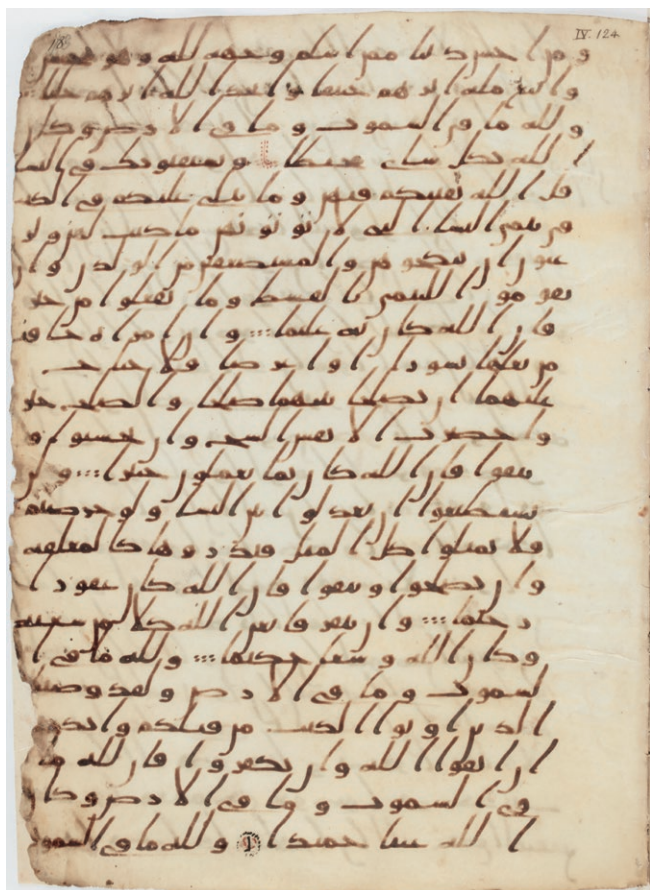 IV. 124
18
ومن احسن دينا ممن اسلم وجهه لله وهو محسن
واتبع مله ابرهيم حنيفا واتخذ الله ابرهيم خليلا
ولله ما في السموت وما في الارض وكان
الله بكل شاي محيطا ويستفتونك في النسا
قل الله يفتيكم فيهن وما يتلى عليكم في الكتب
في يتمى النسا التي لا تؤتونهن ما كتب لهن وتر
غبون ان تنكحوهن والمستضعفين من الولدن وان
تقوموا لليتمى بالقسط وما تفعلوا من خير
فان الله كان به عليما وان امراه خافت
من بعلها نشوزا او اعرضا فلا جناح
عليهما ان يصلحا بينهما صلحا والصلح خير
واحضرت الانفس الشح وان تحسنوا و
تتقوا فان الله كان بما تعملون خبيرا ولن
تستطيعوا ان تعدلوا بين النسا ولو حرصتم
فلا تميلوا كل الميل فتذروها كالمعلقه
وان تصلحوا وتتقوا فان الله كان غفورا
رحيما وان يتفرقا يغن الله كلا من سعته
وكان الله وسعا حكيما ولله ما في ا
لسموت وما في الارض ولقد وصينا
الذين اوتوا الكتب من قبلكم واياكم
ان اتقوا الله وان تكفروا فان لله ما
في السموت وما في الارض وكان
الله غنيا حميدا ولله ما في السموت